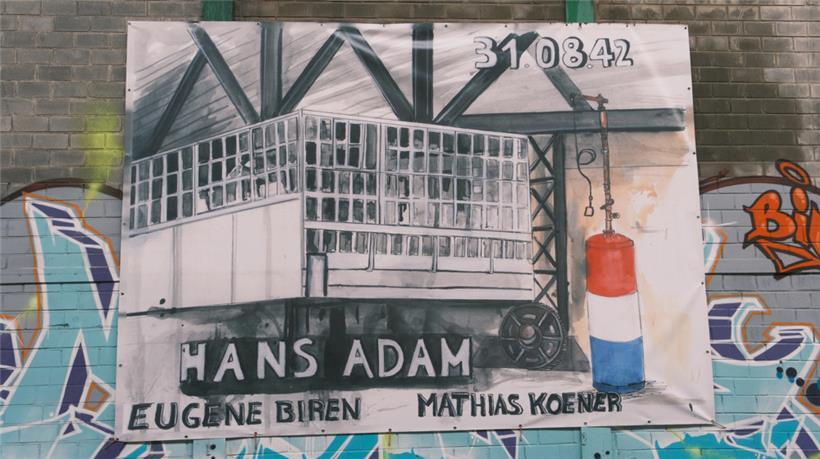 31.08.42
HANS ADAM
EUGENE BIREN
MATHIAS KOENER